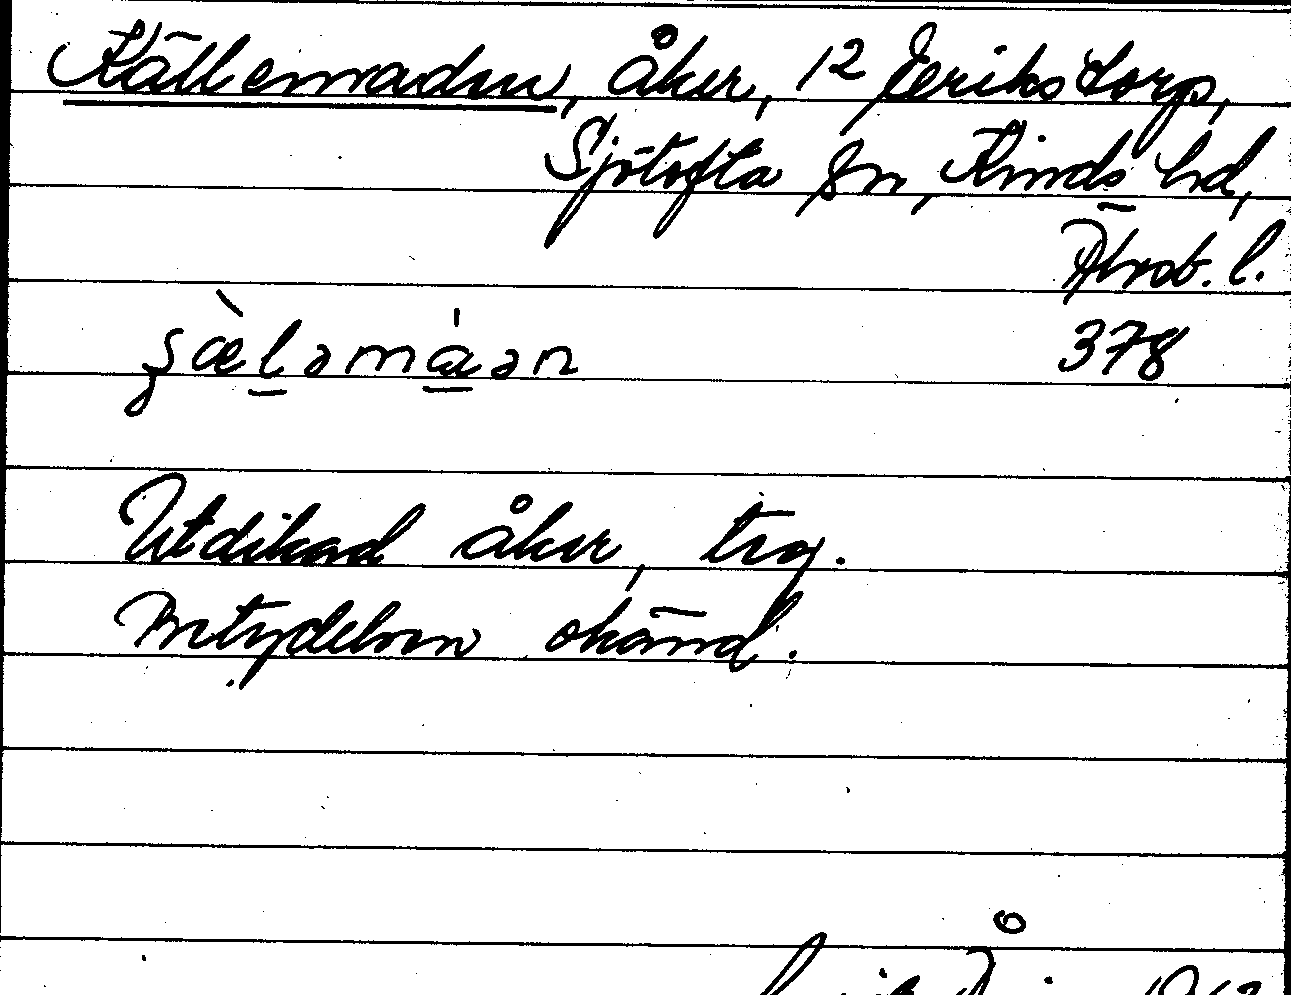 Källemaden, åker, 12 Jerikstorp,
Sjötofta sn, Kinds hd,
Älvsb. l.
378
Utdikad åker, trg.
Betydelsen okänd.